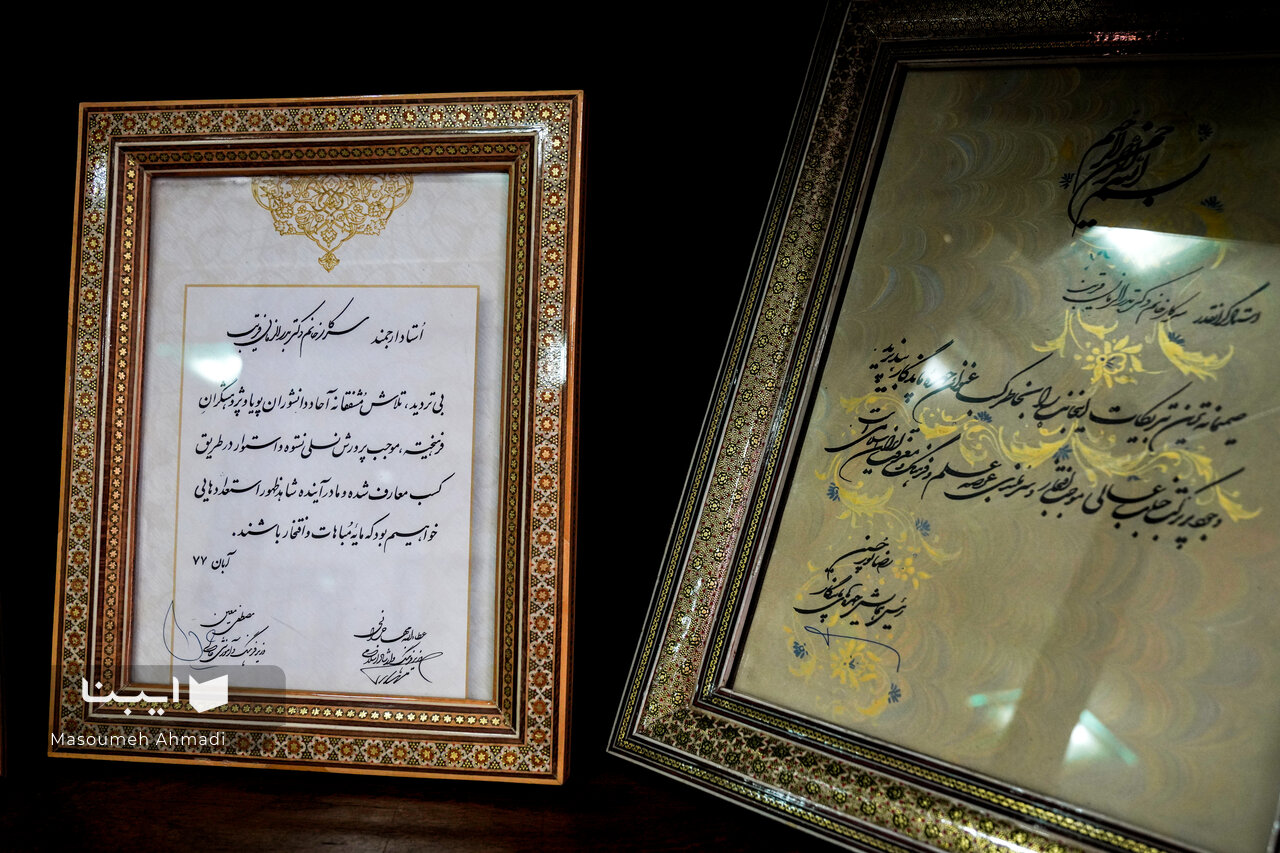 اُستاد ارجمند سرکار خانم دکتر بدرالزمان قریب
بی تردید، تلاش مُشفقانهٔ آحاد دانشوران پویا و پژوهشگرانِ
فرهیخته، موجب پرورش نسلی نستوه و استوار در طریق
کسب معارف شده و ما در آینده شاهد ظهور استعدادهایی
خواهیم بود که مایهٔ مُباهات و افتخار باشند.
آبان ۷۷
مصطفی معین
وزیر فرهنگ و آموزش عالی
عطاءالله مهاجرانی
وزیر فرهنگ و ارشاد اسلامی
بسم الله الرحمن الرحیم
استاد گرانقدر سرکار خانم دکتر بدرالزمان قریب
صمیمانه ترین تبریکات اینجانب را بخاطر کسب عنوان چهره ماندگار بپذیرید
وجود پر برکت جنابعالی موجب افتخار و سربلندی عرصه علم و فرهنگ
رئیس همایش چهره های ماندگار
ایبنا
Masoumeh Ahmadi